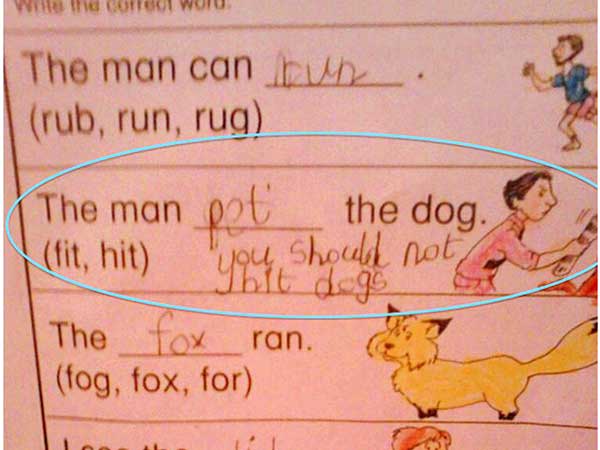 Write the correct word.
The man can run .
(rub, run, rug)
The man pet the dog.
(fit, hit) you should not
hit dogs
The fox ran.
(fog, fox, for)
I see the